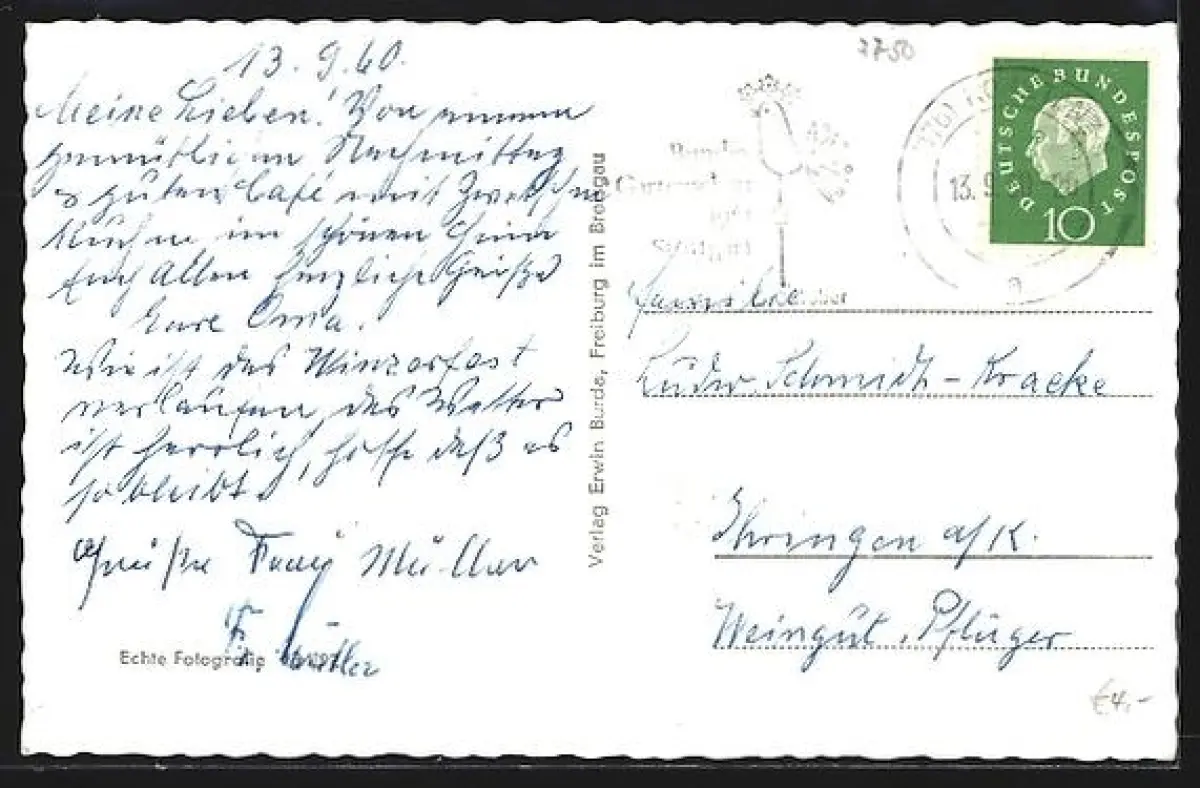 13.9.60.
Meine Lieben! Von einem
gemütlichen Nachmittag
b guten Café mit Zwetschen
Kuchen im schönen
Euch Allen herzliche Grüße
Eure Oma.
Wie ist das Winzerfest
verlaufen, das Wetter
ist herrlich, hoffe daß es
so bleibt.
Grüße Frau Müller
F. Müller
Echte Fotografie
Verlag Erwin Burda, Freiburg im Breisgau
7750
Bundes
Gartenschau
1961
Stuttgart
13.9.
DEUTSCHE BUNDESPOST
10
a
Familie
Ludw. Schmidt-Kracke
Ihringen a/K.
Weingut Pflüger
€4,-